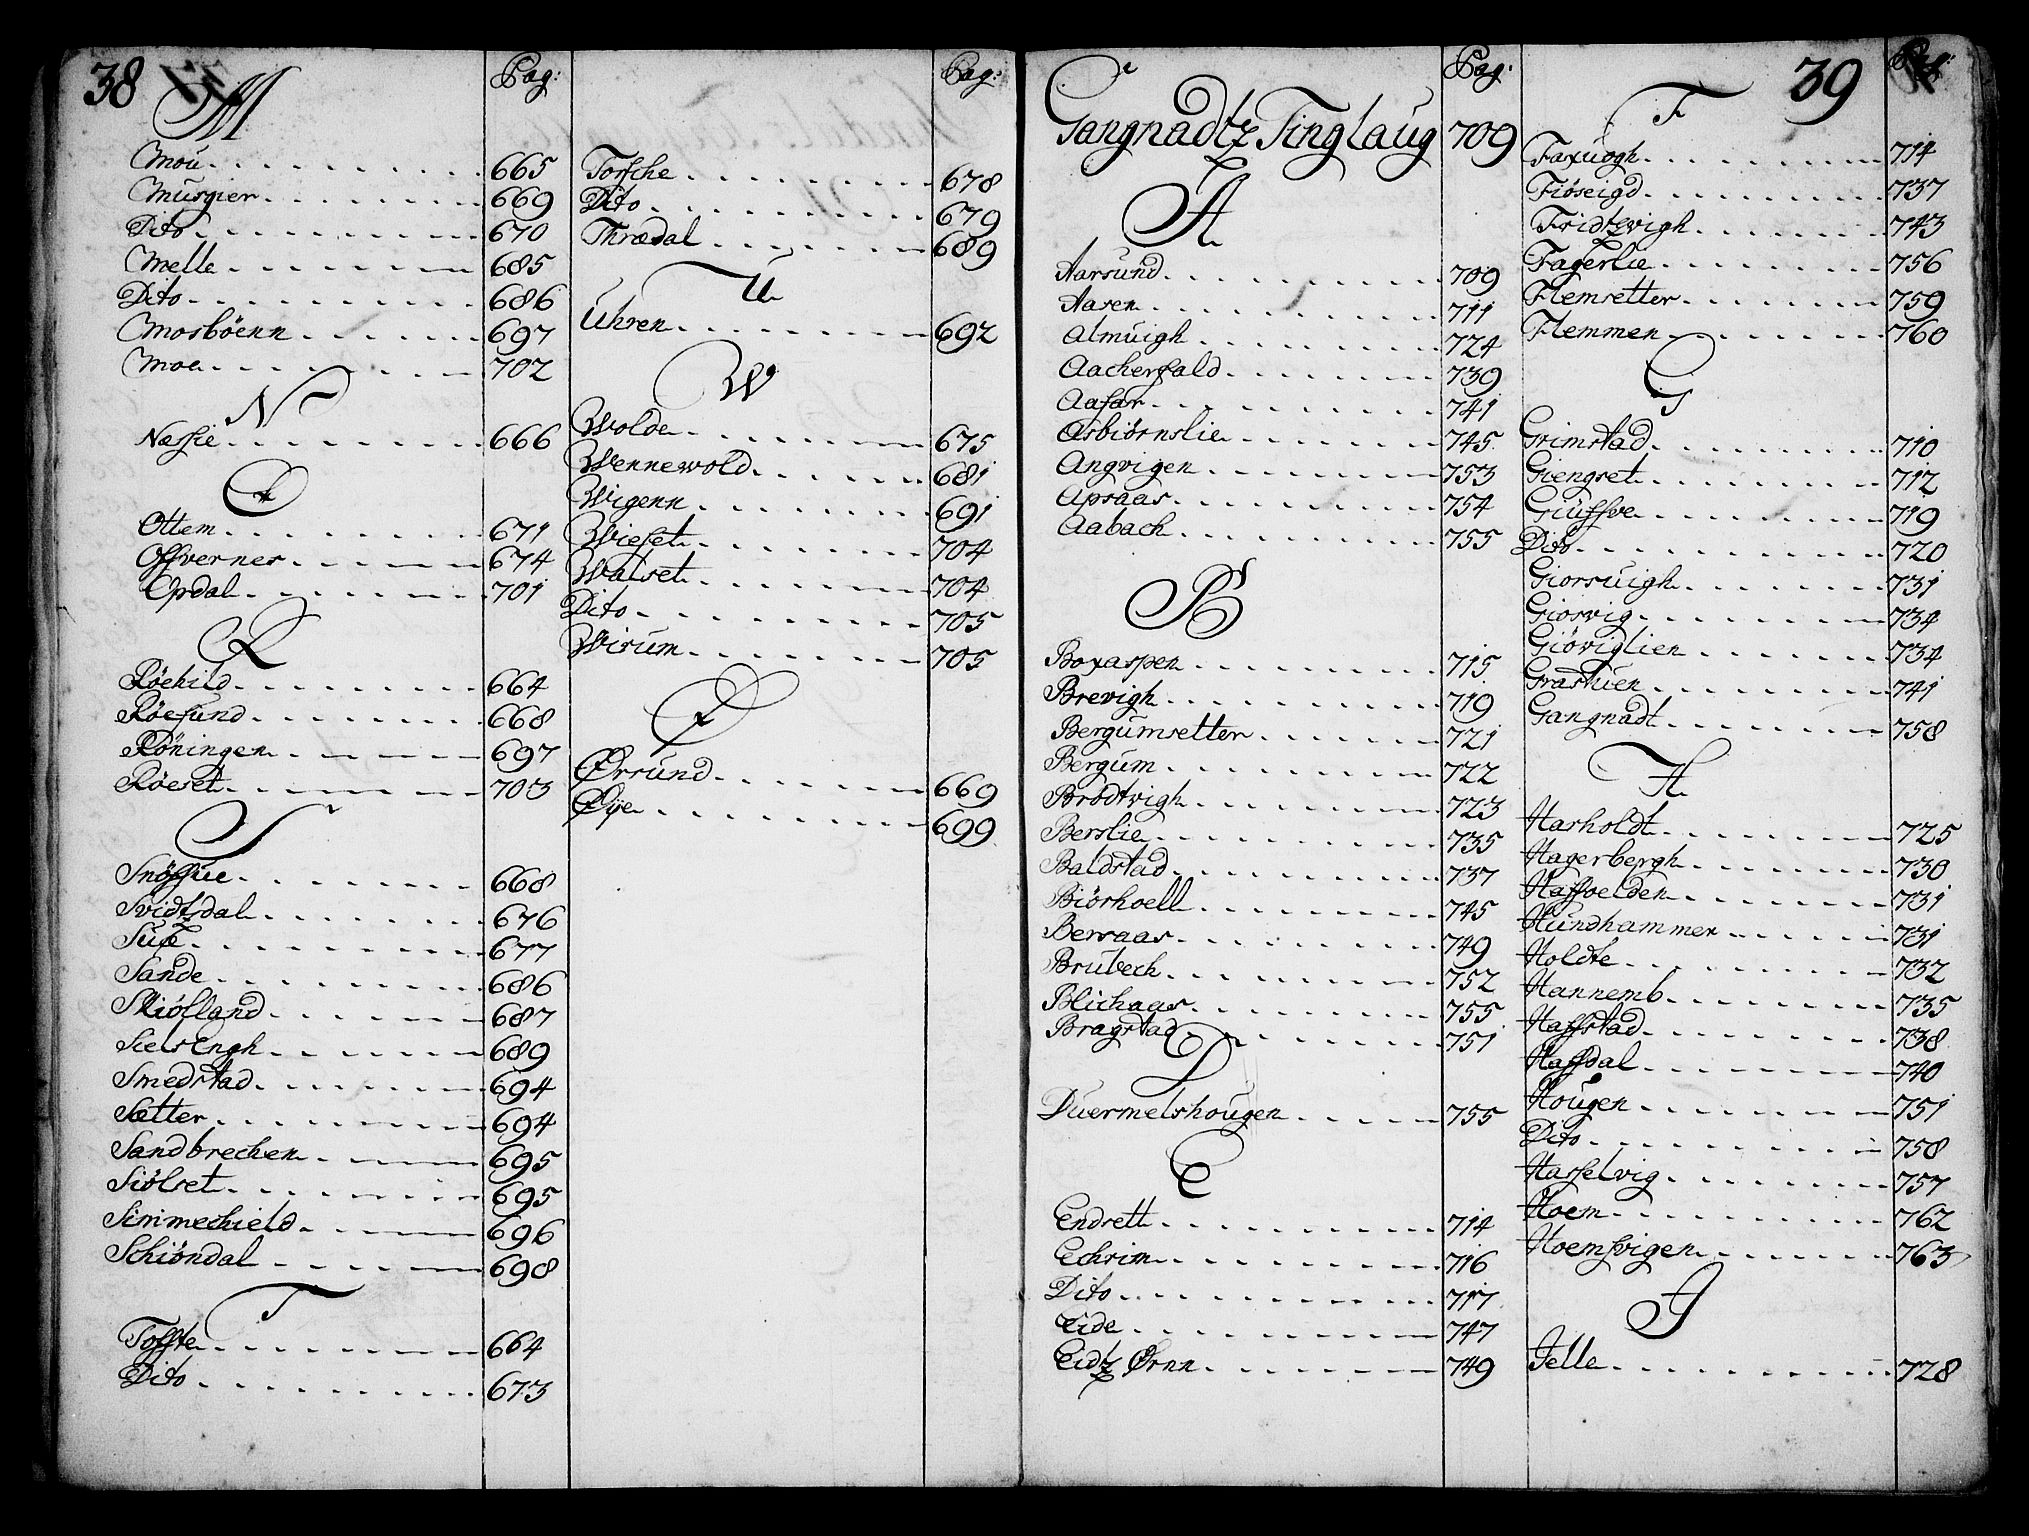 38
Pag:
M
Mou 665
Musgier 669
Dito 670
Melle 685
Dito 686
Mosböenn 697
Moe 702
N
Nessie 666
O
Ottem 671
Offverner 674
Opdal 701
R
Röehild 664
Röesund 668
Röningen 697
Röeset 703
S
Snöffue 668
Svidtsdal 676
677
Sande 686
Skiölland 687
Siels Engh 689
Smedstad 694
Sætter 694
Sandbrechen 695
Siölset 695
Simmechield 696
Schiöndal 698
T
Toffte 664
Dito 673
Pag:
Torsche 678
Dito 679
Thrædal 689
U
Uhren 692
W
Wolde 675
Wennewold 681
Wigenn 691
Wieset 704
Walset 704
Dito 705
Wirum 705
Ø
Ørsund 669
Øye 699
Pag:
Gangnadtz Tinglaug 709
A
Aarsund 709
Aasen 711
Almuigh 724
Aacherfald 739
Aafar 741
Asbiørnslie 745
Angvigen 753
Apsaas 754
Aabach 755
B
Boxaspen 715
Brevigh 719
Bergumsetter 721
Bergum 722
Brödtvigh 723
Berslie 735
Baldstad 737
Biörhoell 745
Bersaas 749
Brubech 752
Blichaas 755
Bragstad 751
D
Duermelshougen 755
E
Endsett 714
Echrim 716
Dito 717
Eide 747
Eidtz Ørnn 749
39
Pag:
F
Faxuogh 714
Fiøseigd 737
Fridtzvigh 743
Fagerlie 756
Flemsetter 759
Flemmen 760
G
Grimstad 710
Giengset 712
Giuffve 719
Dito 720
Giorsuigh 731
Giosvig 734
Giöviglien 734
Grastuen 741
Gangnadt 758
H
Harholdt 725
Hagerbergh 730
Haffvelden 731
Hundhammer 731
Holdte 732
Hannemb 735
Haffstad 738
Haffdal 740
Hougen 751
Dito 758
Hasselvig 757
Hoem 762
Hoemsvigen 763
J
Jelle 728